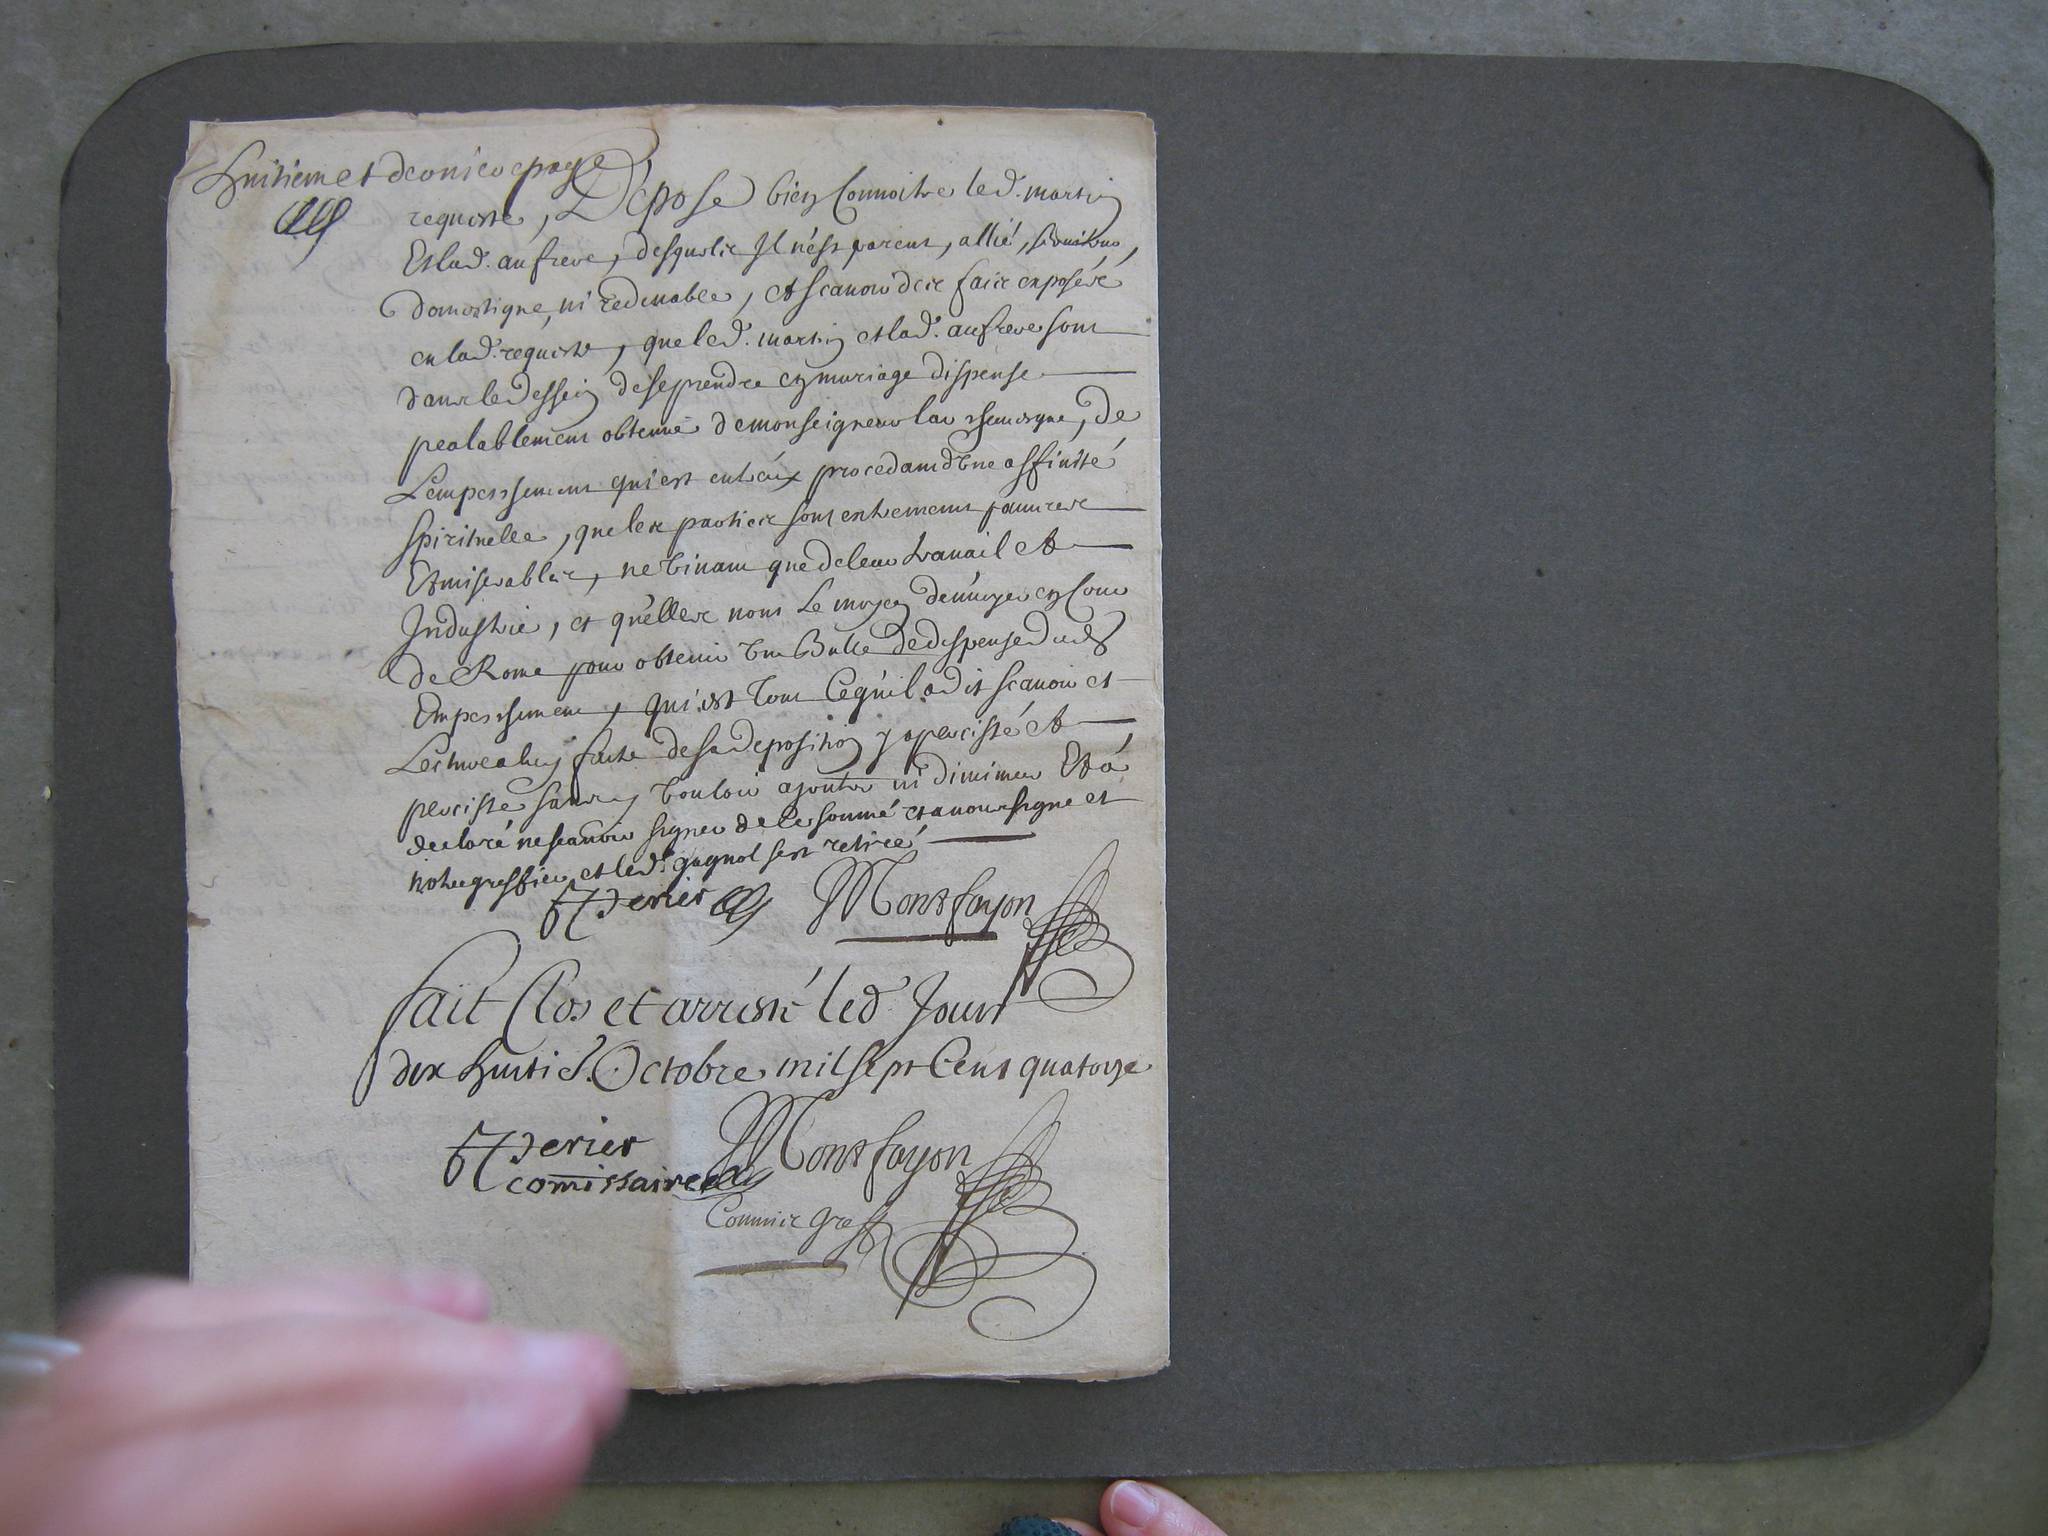 huitieme et derniere page
requeste, Dépose bien Connoitre led. martin
Et lad. aufrere, desquels Il nést parent, allié, serviteur,
domestique, ni redevable, et scavoir des faits exposéz
en lad. requeste, que led. martin et lad. aufrere sont
dans le dessein de se prendre en mariage dispense
pealablement obtenue de monseigneur larchevesque, de
Lempeschement qui est entréux procedant dune affinité
Spirituelle, que les parties sont extremement pauvres
Et miserables, ne vivant que de leur travail et
Industrie, et quelles nont Le moyen denvoyer en Cour
de Rome pour obtenir une Bulle de dispense dud.
Empeschement, qui est tout Ce qu'il a dit scavoir et
Lecture a luy faite de sa deposition y a percisté et
perciste sans y vouloir ajouter ni diminuer Et a
declaré ne scavoir signer de Ce sommé et avons signé et
notre greffier et led. gagnol sest retiré
Perier Montfayon
fait Clos et arresté led. Jour
dix huitie. Octobre mil sept Cent quatorze
Perier Montfayon
comissaire
Commis greff